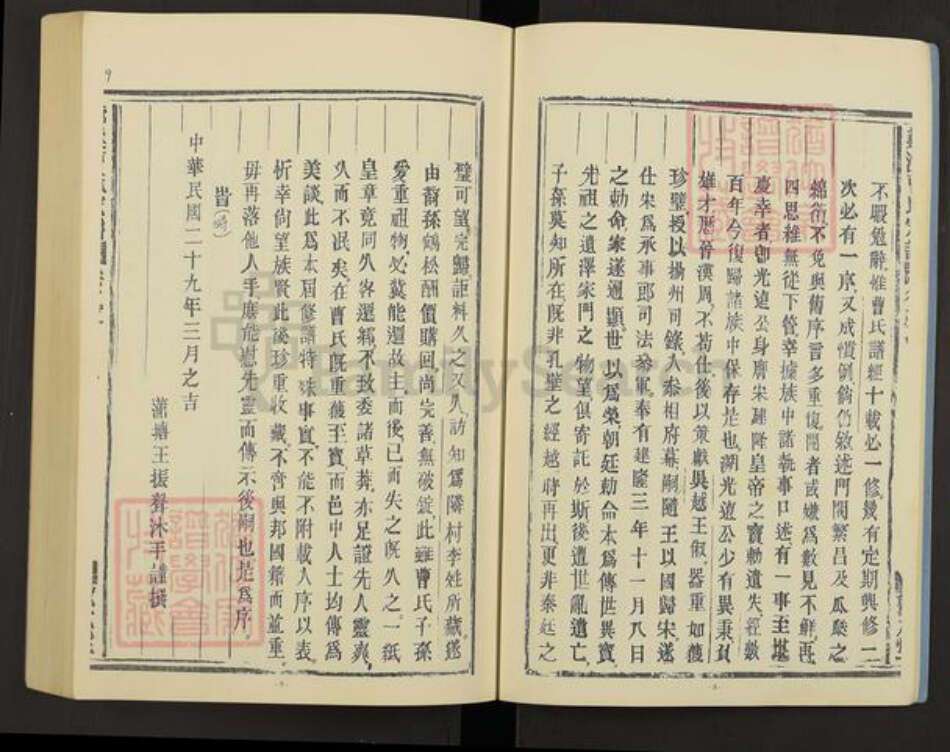 不暇勉辭惟曹氏譜經十載必一修幾有定期興修一
次必有一序又成慣例倘仍敘述門閥繁昌及瓜瓞之
綿衍不免與舊序言多重復閱者或嫌爲數見不鮮再
四思維無從下管幸據族中諸執事口述有一事至堪
慶幸者卽光遠公身膺宋建隆皇帝之寶勅遺失經數
百年今復歸諸族中保存是也溯光遠公少有異秉負
雄才歷晉漢周不苟仕後以策獻吳越王俶器重如獲
珍璧授以揚州司錄入參相府幕嗣隨王以國歸宋遂
仕宋爲承事郎司法參軍奉有建隆三年十一月八日
之勅命家遂通顯世以爲榮朝廷勅命本爲傳世異寶
先祖之遺澤家門之物望俱寄託於斯後遭世亂遺亡
子孫莫知所在旣非孔壁之經越時再出更非秦廷之
璧可望完歸詎料久之又久訪知爲隣村李姓所藏遂
由裔孫鶴松酬價購回尚完善無破綻此雖曹氏子孫
愛重祖物必冀能還故主而後已而失之旣久之一紙
皇章竟同久客還鄉不致委諸草莽亦足證先人靈爽
久而不泯矣在曹氏旣重獲至寶而邑中人士均傳爲
美談此爲本屆修譜特殊事實不能不附載入序以表
祈幸尙望族賢此後珍重收藏不啻與邦國
而並重
毋再落他人手庶能慰先靈而傳示後嗣也是爲序
皆
中華民國二十九年三月之吉
蕭塘王振聲沐手謹撰
FamilySearch